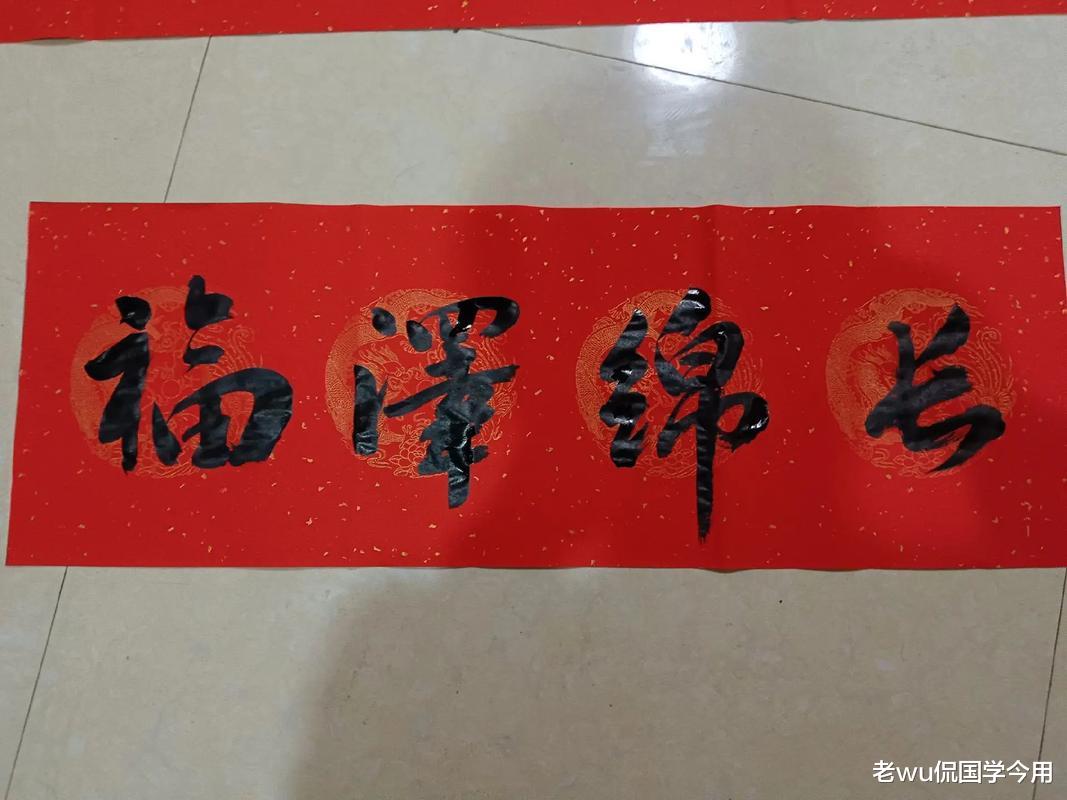 福澤绵长
老wu侃国学今用